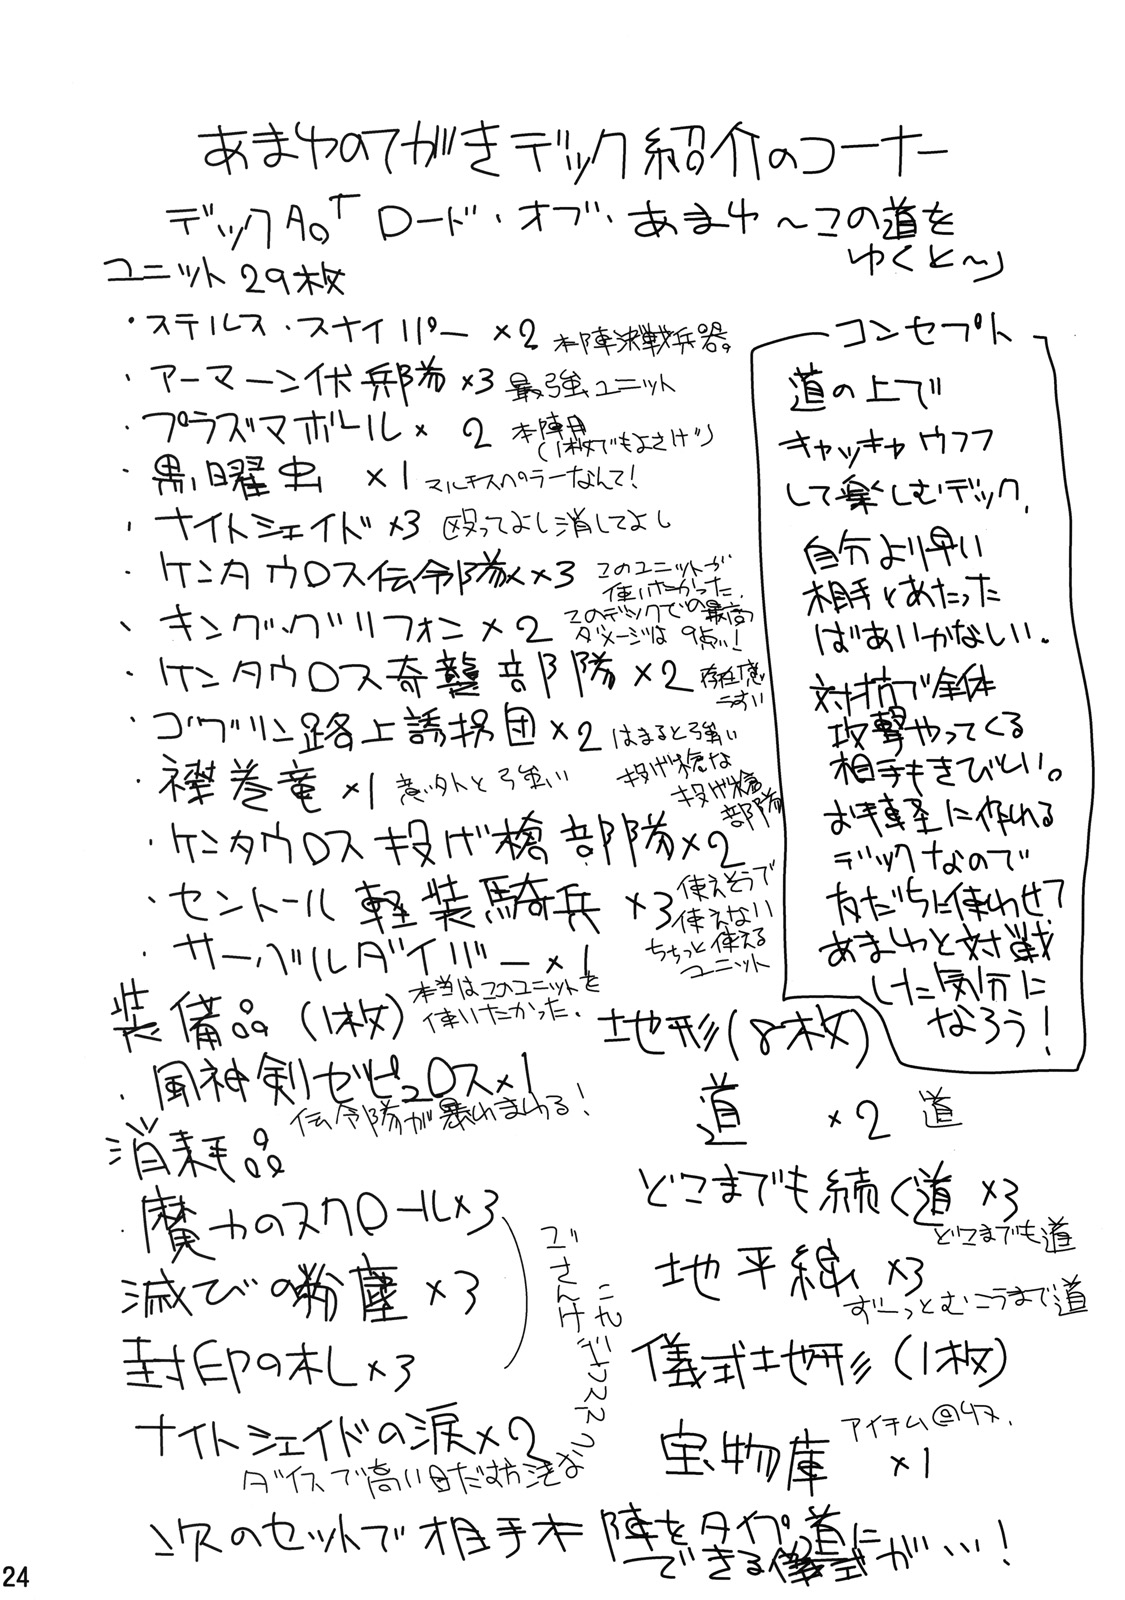 あまゆのてがきデック紹介のコーナー
デックAの「ロード・オブ・あまゆ〜この道を
ゆくと〜」
ユニット29枚
・ステルス・スナイパー×2 本陣決戦兵器。
・アーマーン伏兵部隊×3 最強ユニット
・プラズマボール×2 本陣用
(1枚でもよさげ)
・黒曜虫×1 マルチスペラーなんて!
・ナイトシェイド×3 殴ってよし消してよし
・ケンタウロス伝令部隊×3 このユニットが
使いたかった.
・キング・グリフォン×2 このデックでの最高
ダメージは9点!
・ケンタウロス奇襲部隊×2 存在感
うすい
・ゴブリン路上誘拐団×2 はまると強い
・襟巻竜×1 意外と強い
・ケンタウロス投げ槍部隊×2 投げ槍な
投げ槍
部隊
・セントール軽装騎兵×3 使えそうで
使えない
ちょっと使える
ユニット
・サーベルダイバー×1
本当はこのユニットを
使いたかった.
コンセプト
道の上で
キャッキャウフフ
して楽しむデック.
自分より早い
相手とあたった
ばあいかなしい。
対抗で全体
攻撃やってくる
相手もきびしい。
お手軽に作れる
デックなので
友だちに使わせて
あまゆと対戦
した気分に
なろう!
装備品(1枚)
・風神剣ゼピュロス×1
伝令部隊が暴れまわる!
消耗品
・魔力のスクロール×3
滅びの粉塵×3
封印の札×3
ごさんけ
ナイトシェイドの涙×2
ダイスで高い目だせば
地形(8枚)
道×2 道
どこまでも続く道×3
どこまでも道
地平線×3
ずーっとむこうまで道
儀式地形(1枚)
宝物庫×1
アイテム回収.
次のセットで相手本陣をタイプ道に
できる儀式が…!
24